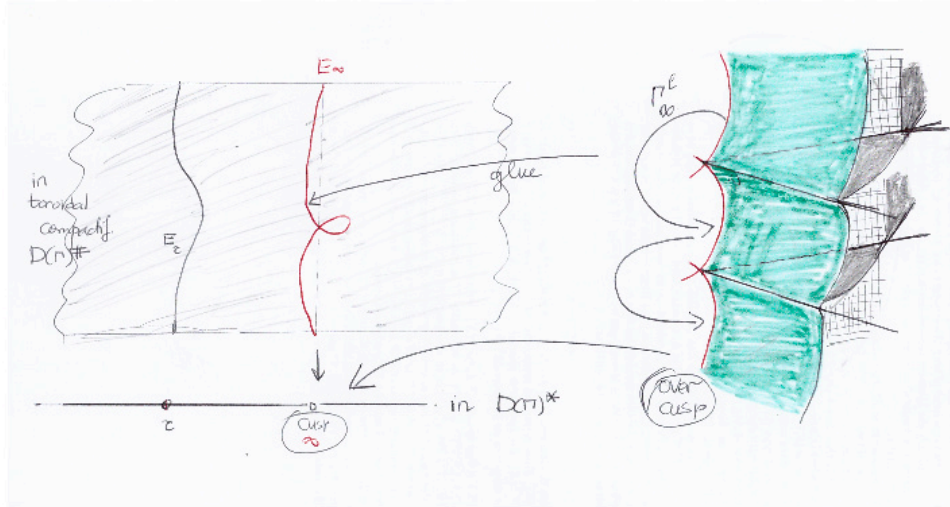 E∞
in
toroidal
compactif.
D(Γ)#
E_τ
glue
Γ_∞^ℓ
τ
cusp
∞
in D(Γ)*
over
cusp